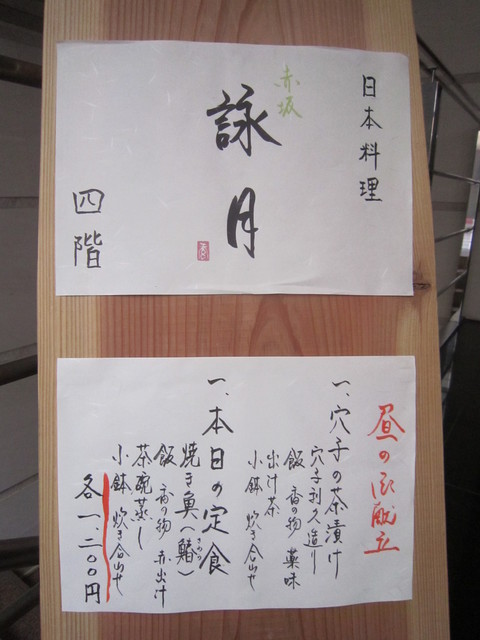 日本料理
赤坂
詠月
四階
昼の御献立
一、穴子の茶漬け
穴子利久造り
飯 香の物 薬味
出汁茶
小鉢 炊き合わせ
一、本日の定食
焼き魚（鰆）
さわら
飯 香の物 赤出汁
茶碗蒸し
小鉢 炊き合わせ
各一、二〇〇円